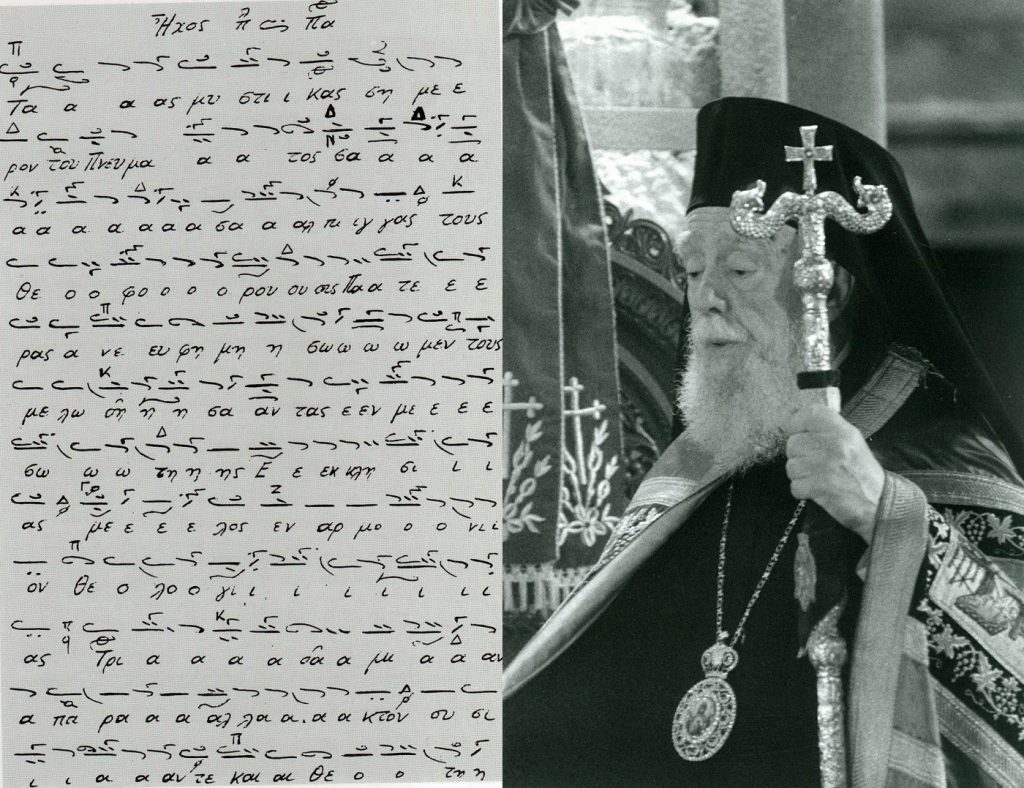 Ἦχος Πα
Τα α α ας μυ στι ι κας ση με ε
ρον του Πνευμα α α τος σα α α α
α α α α α α α σα α αλ πι ιγ γας τους
θε ο ο φο ο ο ο ρου ου στε ε ε
ρας α νε ευ φη μη η σω ω ω ω μεν τους
με λω δη η η σα αν τας ε εν με ε ε ε
σω ω ω τη η ης Ε ε εκ κλη σι ι ι
ας με ε ε ε λος εν αρ μο ο ο νι ι
ον θε ο λο ο γι ι ι ι ι ι ι ι
ας Τρι α α α α δα α μι α α αν
α πα ρα α α αλ λα α α α κτον ου σι
ι ι α α αν τε και αι θε ο ο τη η